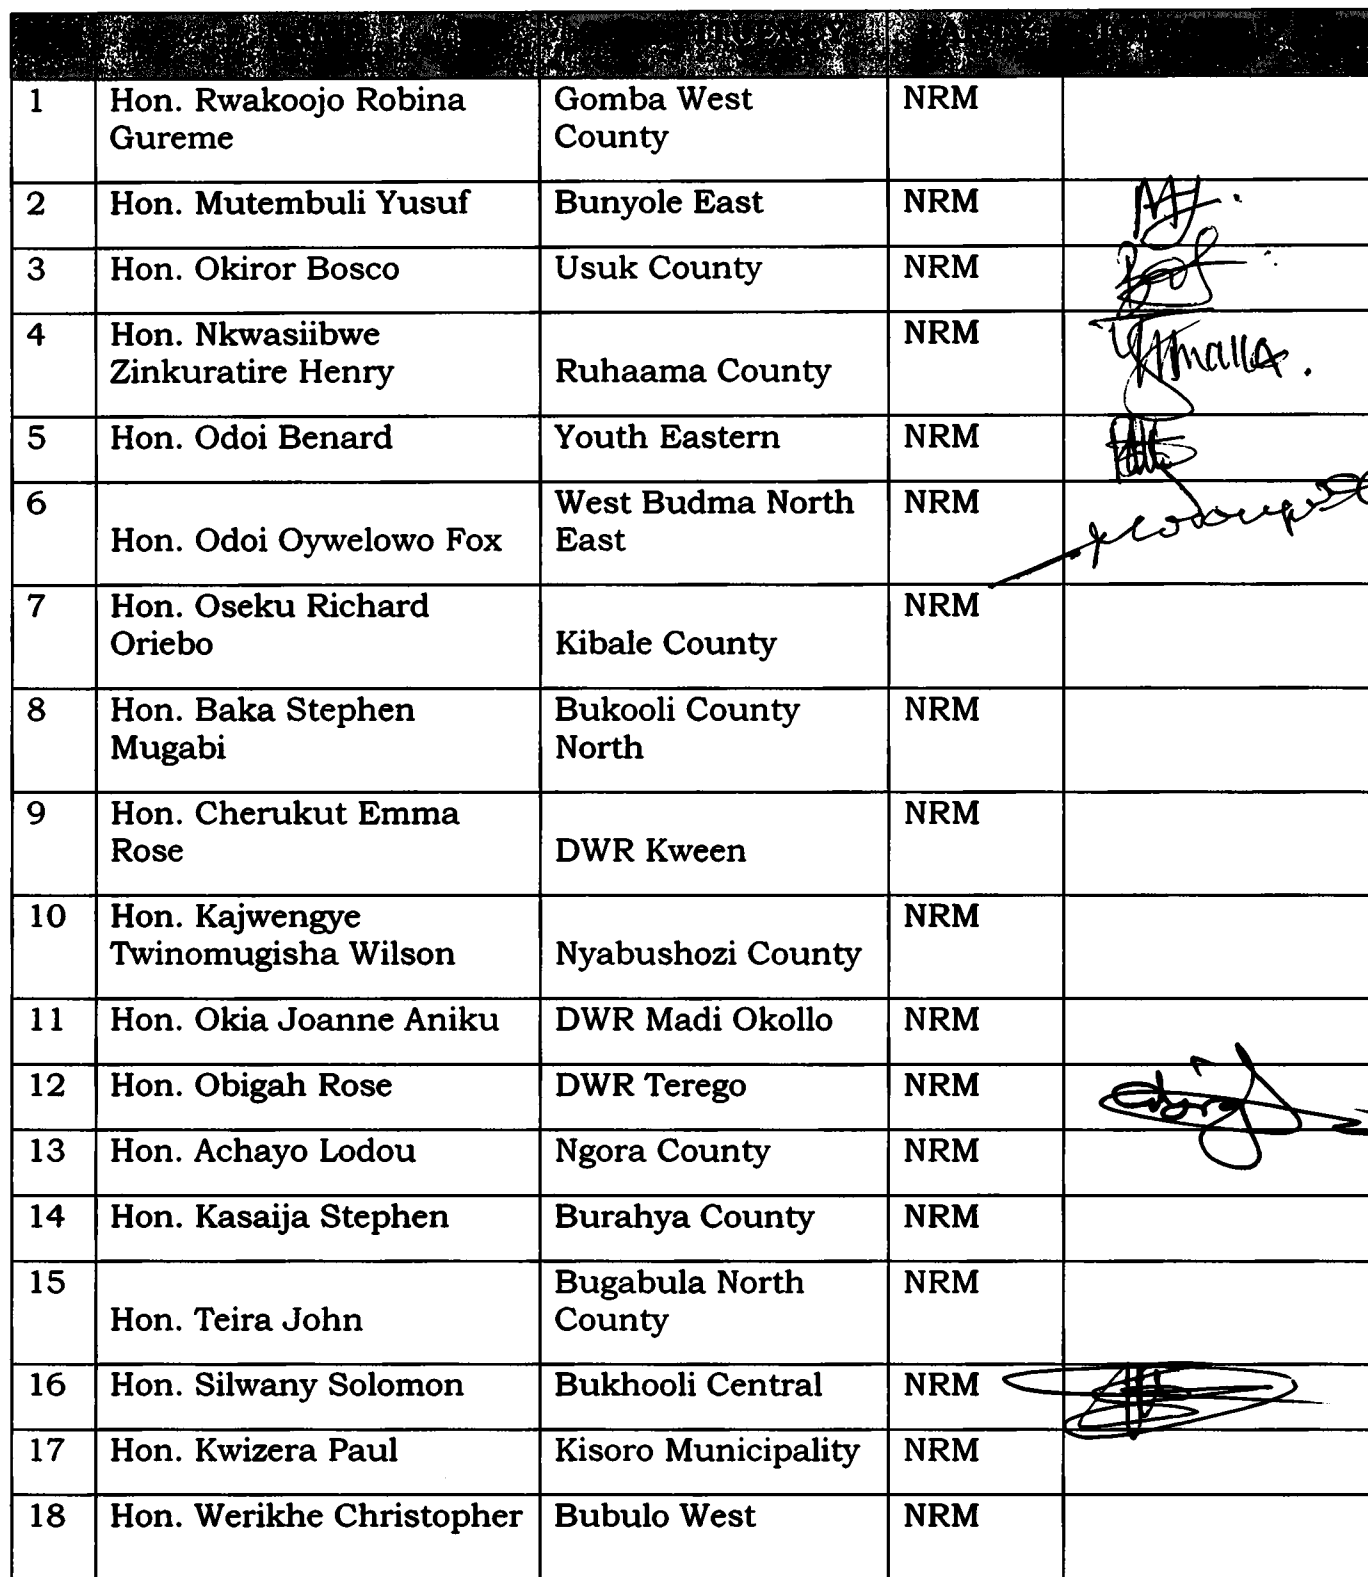 PARTY
1 Hon. Rwakoojo Robina Gomba West NRM
Gureme County
2 Hon. Mutembuli Yusuf Bunyole East NRM
3 Hon. Okiror Bosco Usuk County NRM
4 Hon. Nkwasiibwe NRM
Zinkuratire Henry Ruhaama County
5 Hon. Odoi Benard Youth Eastern NRM
6 West Budma North NRM
Hon. Odoi Oywelowo Fox East
7 Hon. Oseku Richard NRM
Oriebo Kibale County
8 Hon. Baka Stephen Bukooli County NRM
Mugabi North
9 Hon. Cherukut Emma NRM
Rose DWR Kween
10 Hon. Kajwengye NRM
Twinomugisha Wilson Nyabushozi County
11 Hon. Okia Joanne Aniku DWR Madi Okollo NRM
12 Hon. Obigah Rose DWR Terego NRM
13 Hon. Achayo Lodou Ngora County NRM
14 Hon. Kasaija Stephen Burahya County NRM
15 Bugabula North NRM
Hon. Teira John County
16 Hon. Silwany Solomon Bukhooli Central NRM
17 Hon. Kwizera Paul Kisoro Municipality NRM
18 Hon. Werikhe Christopher Bubulo West NRM